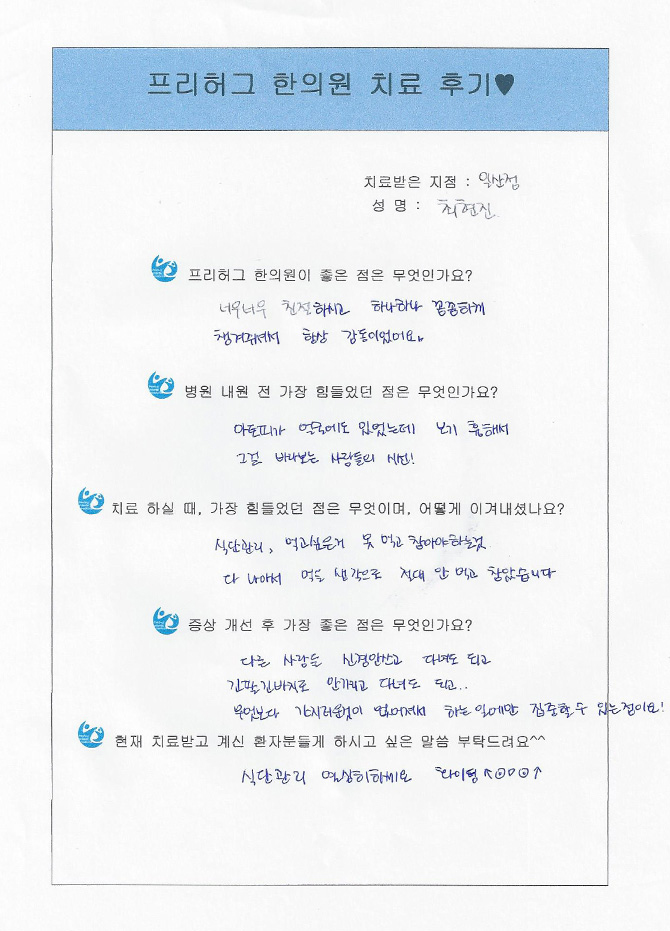 프리허그 한의원 치료 후기♥
치료받은 지점 : 일산점
성 명 : 최현진
프리허그 한의원이 좋은 점은 무엇인가요?
너무너무 친절하시고 하나하나 꼼꼼하게
챙겨줘서 항상 감동이었어요.
병원 내원 전 가장 힘들었던 점은 무엇인가요?
아토피가 얼굴에도 있었는데 보기 흉해서
그걸 바라보는 사람들의 시선!
치료 하실 때, 가장 힘들었던 점은 무엇이며, 어떻게 이겨내셨나요?
식단관리, 먹고싶은거 못 먹고 참아야하는것
다 나아서 먹을 생각으로 절대 안 먹고 참았습니다
증상 개선 후 가장 좋은 점은 무엇인가요?
다른 사람들 신경안쓰고 다녀도 되고
긴팔긴바지로 안가리고 다녀도 되고..
무엇보다 가지러움이 없어져서 하는일에만 집중할수 있는점이요!
현재 치료받고 계신 환자분들게 하시고 싶은 말씀 부탁드려요^^
식단관리 열심히하세요 화이팅